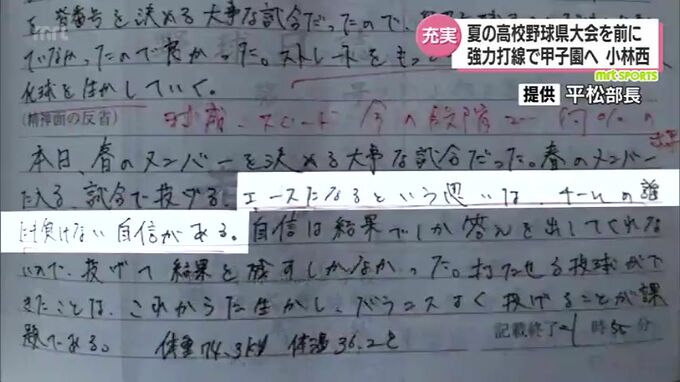 mrt
充実
夏の高校野球県大会を前に
強力打線で甲子園へ 小林西
mrt SPORTS
提供 平松部長
番号を決める大事な試合だったので、
ていなかったので良かった。ストレートをもっと
化球を生かしていく。
(精神面の反省)
球威 スピード 今の段階で
本日、春のメンバーを決める大事な試合だった。春のメンバー
に入る、試合で投げる、エースになるという思いは、チームの誰
にも負けない自信がある。自信は結果でしか答えを出してくれな
いので、投げて結果を残すしかなかった。打たせる投球がで
きたことは、これからに生かし、バランスよく投げることが課
題である。 体重74.3kg 体温36.2℃
記載終了 時 分